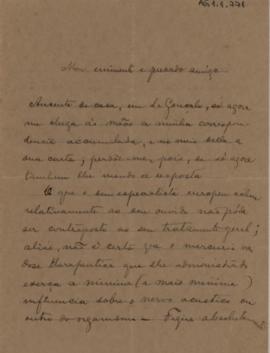 AG1.1.771
Meu eminente e presado amigo
Ausente de casa, em S. Gonçalo, só agora
me chega ás mãos a minha correspon-
dencia accumulada, e no meio della a
sua carta; perdôe-me, pois, se só agora
tambem lhe mando a resposta
O que o seu especialista europeu
relativamente ao seu ouvido não póde
ser contraposto ao seu tratamento geral;
aliás, não é certo que o mercurio na
dose therapeutica que lhe administrão
exerça a minima (a mais minima)
influencia sobre o nervo acustico ou
outro do organismo — Fique absoluta-